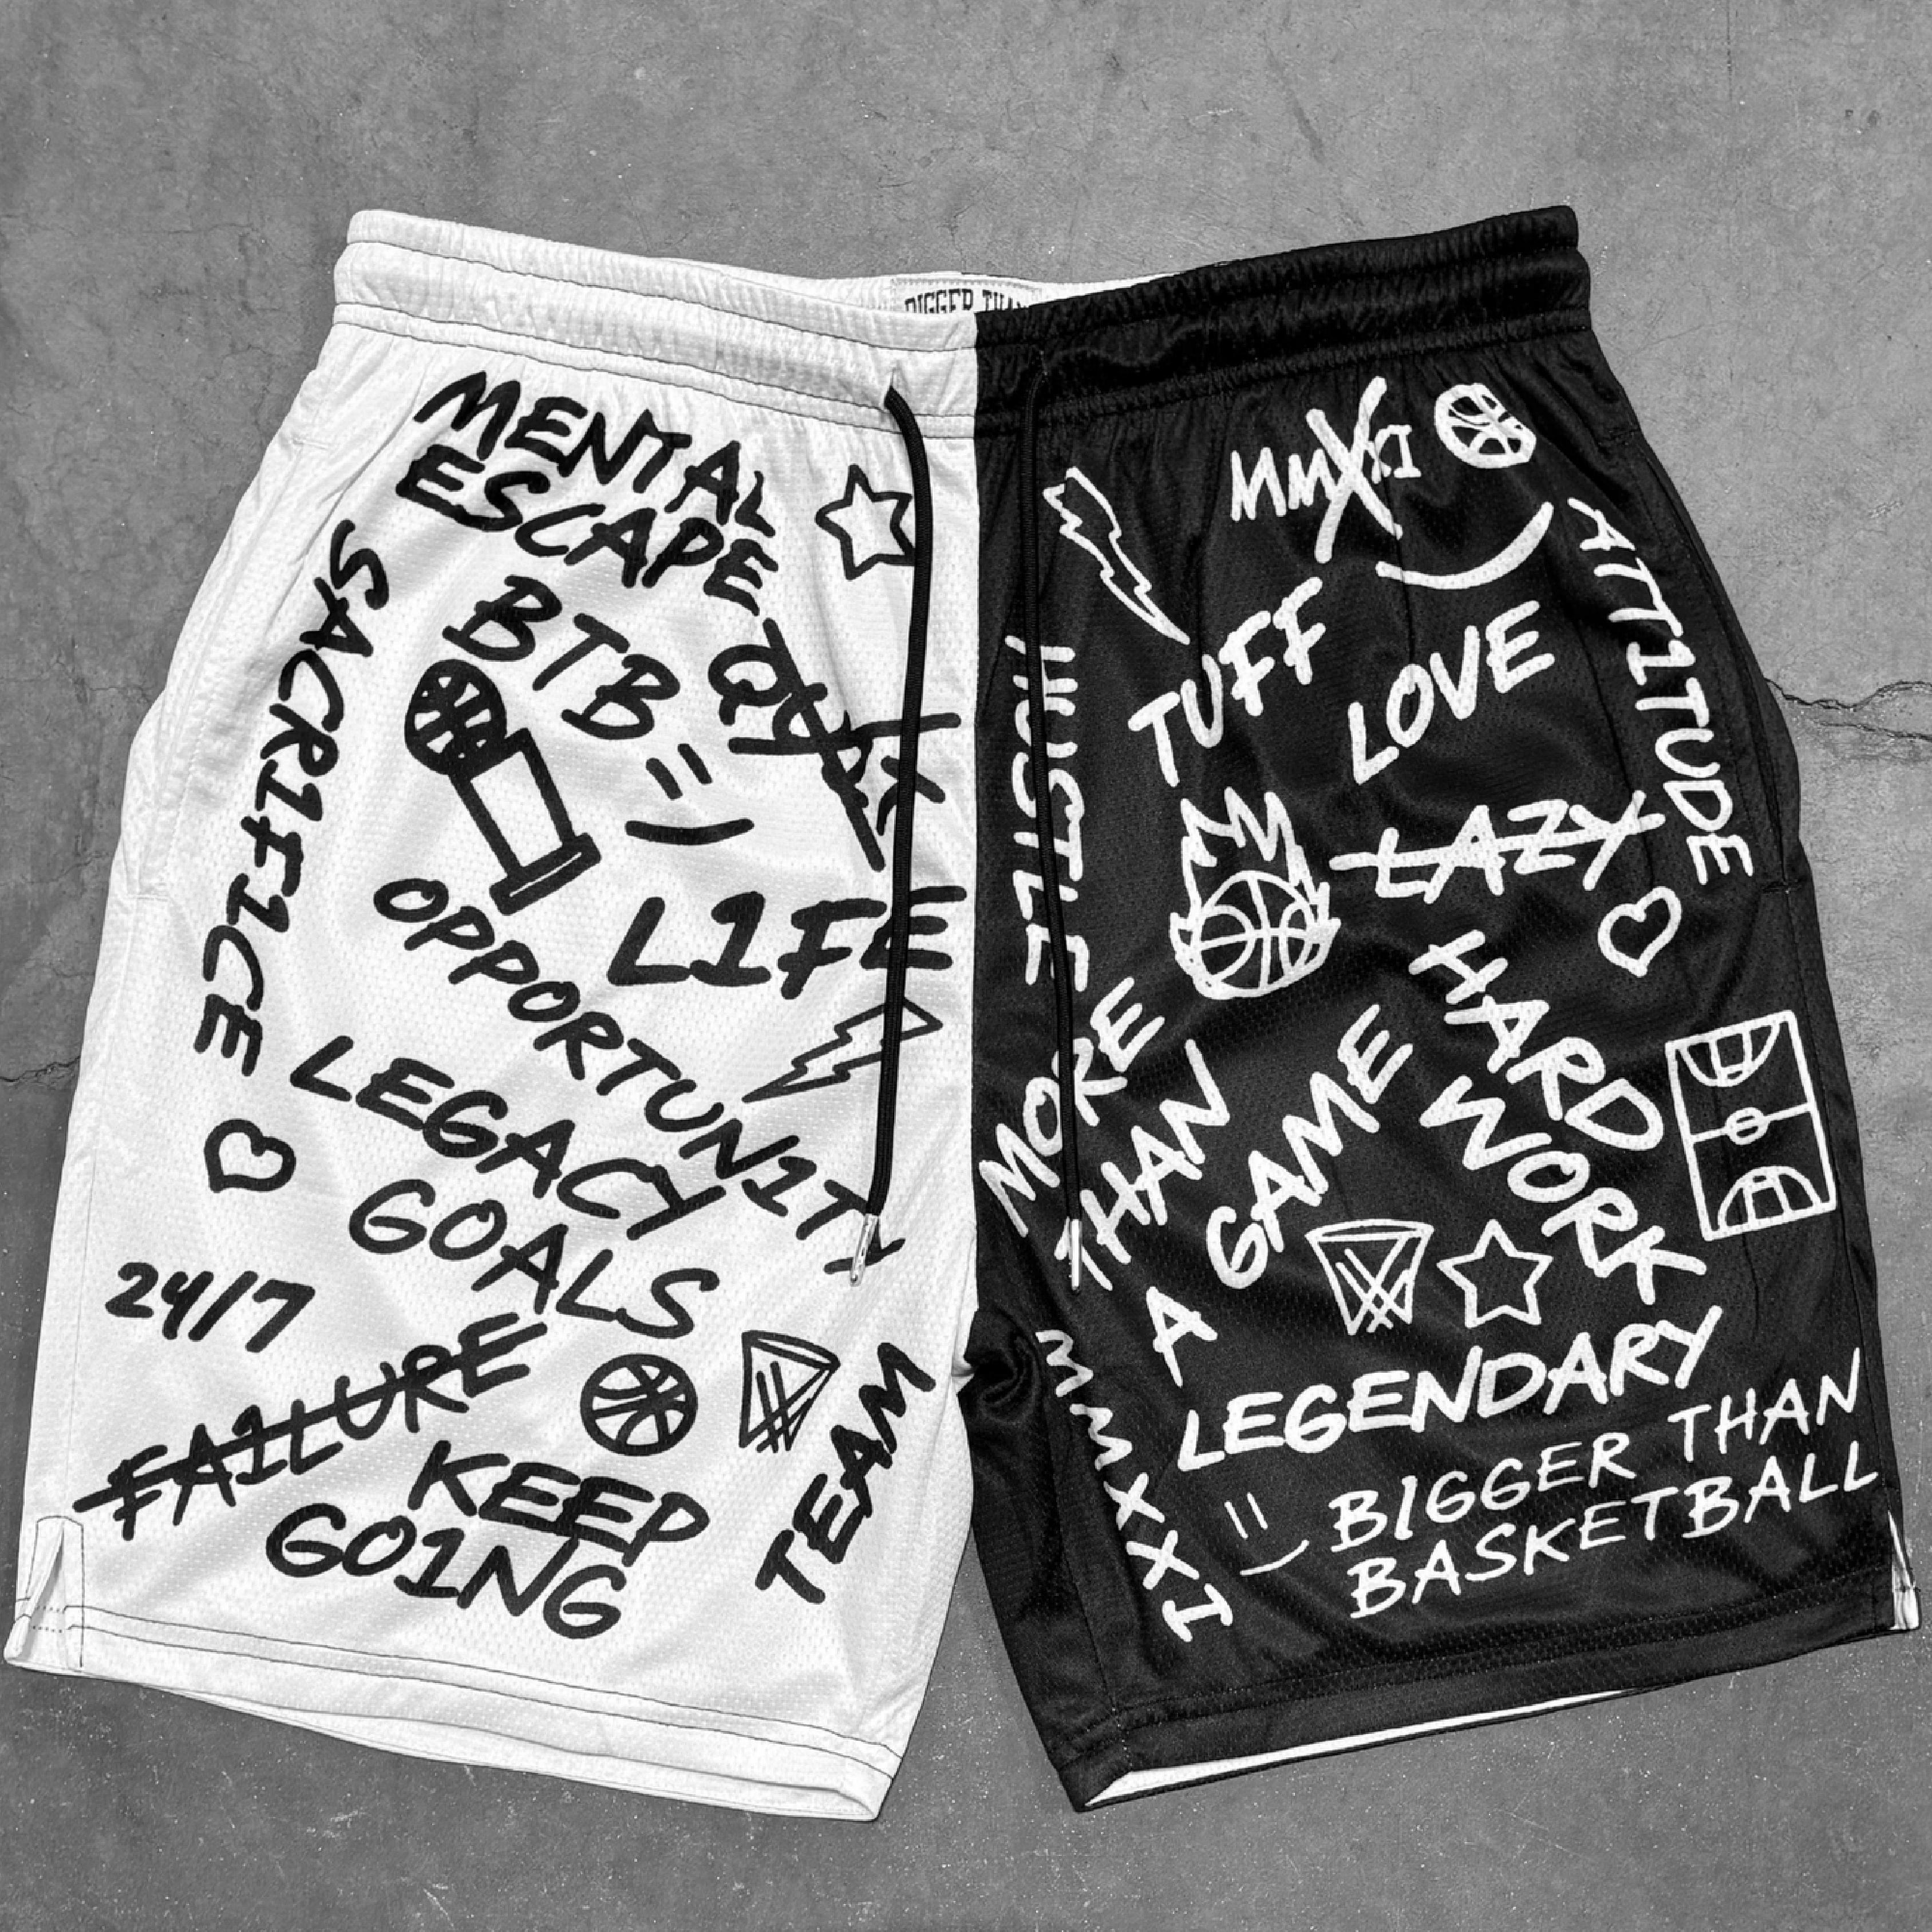 BIGGER THAN
MENTAL
ESCAPE
SACR1F1CE
BTB
L1FE
OPPORTUN1TY
LEGACY
GOALS
24/7
FA1LURE
KEEP
GO1NG
TEAM
MMXXI
ATT1TUDE
TUFF
LOVE
HUSTLE
LAZY
HARD
WORK
MORE
THAN
A GAME
LEGENDARY
MMXXI
BIGGER THAN
BASKETBALL